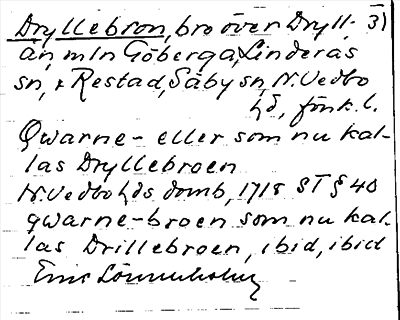 Dryllebron, bro över Dryll- 3)
ån, mln Göberga, Linderås
sn, & Restad, Säby sn, N. Vedbo
hd, Jönk. l.
Qwarne- eller som nu kal-
las Dryllebroen
N. Vedbo hds domb, 1718 ST § 40
qwarne-broen som nu kal-
las Drillebroen, ibid, ibid
Eric Lönnholm